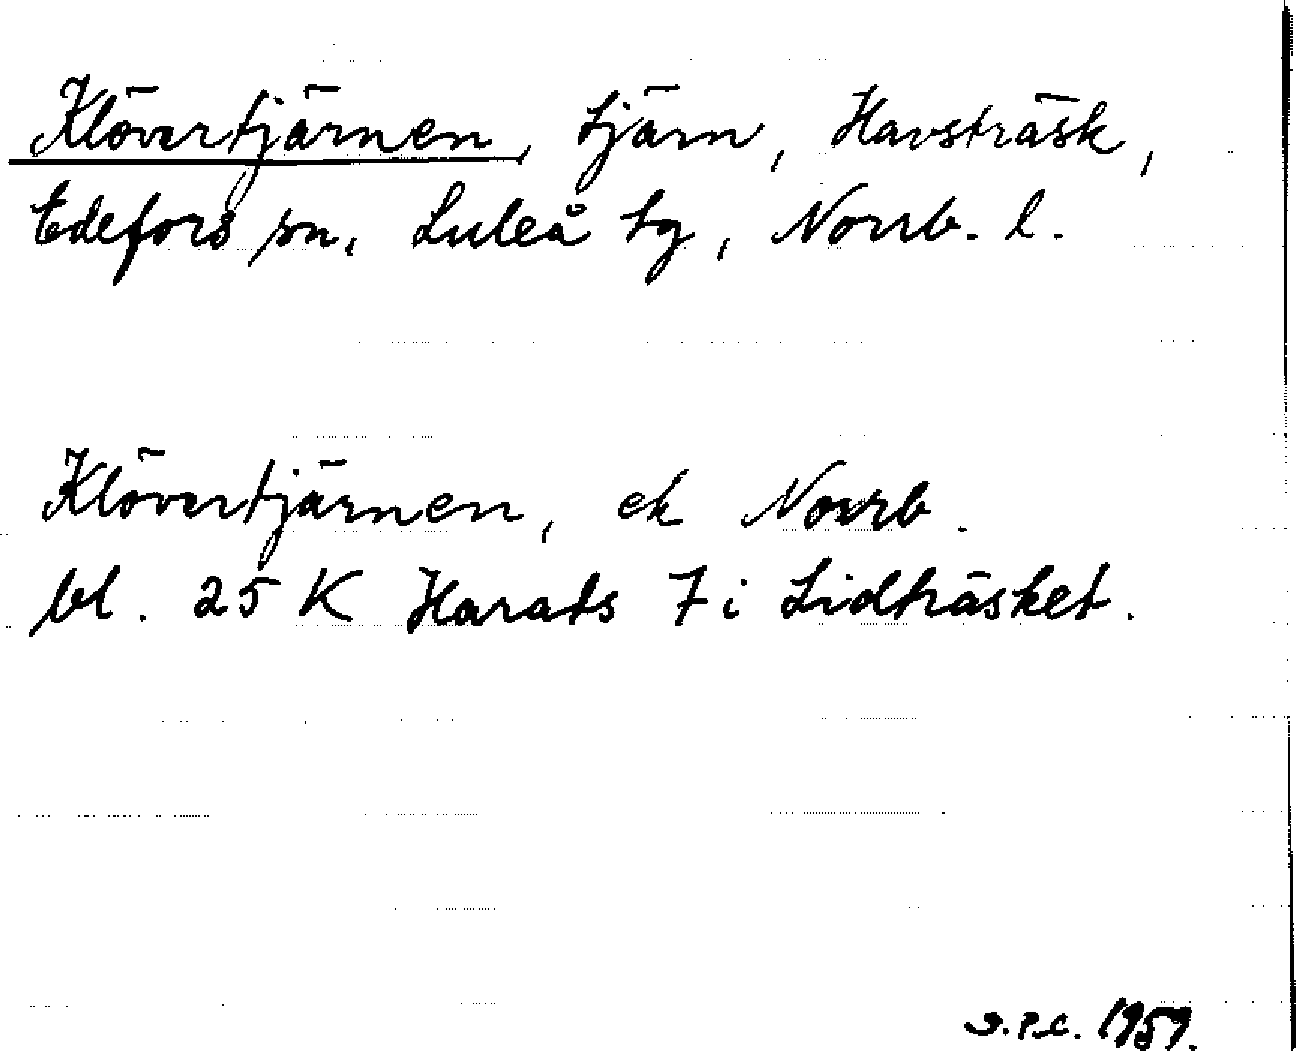 Klövertjärnen, tjärn, Havsträsk,
Edefors sn, Luleå tg, Norrb. l.
Klövertjärnen, ek Norrb.
bl. 25 K Harads 7 i Lidträsket.
1959.